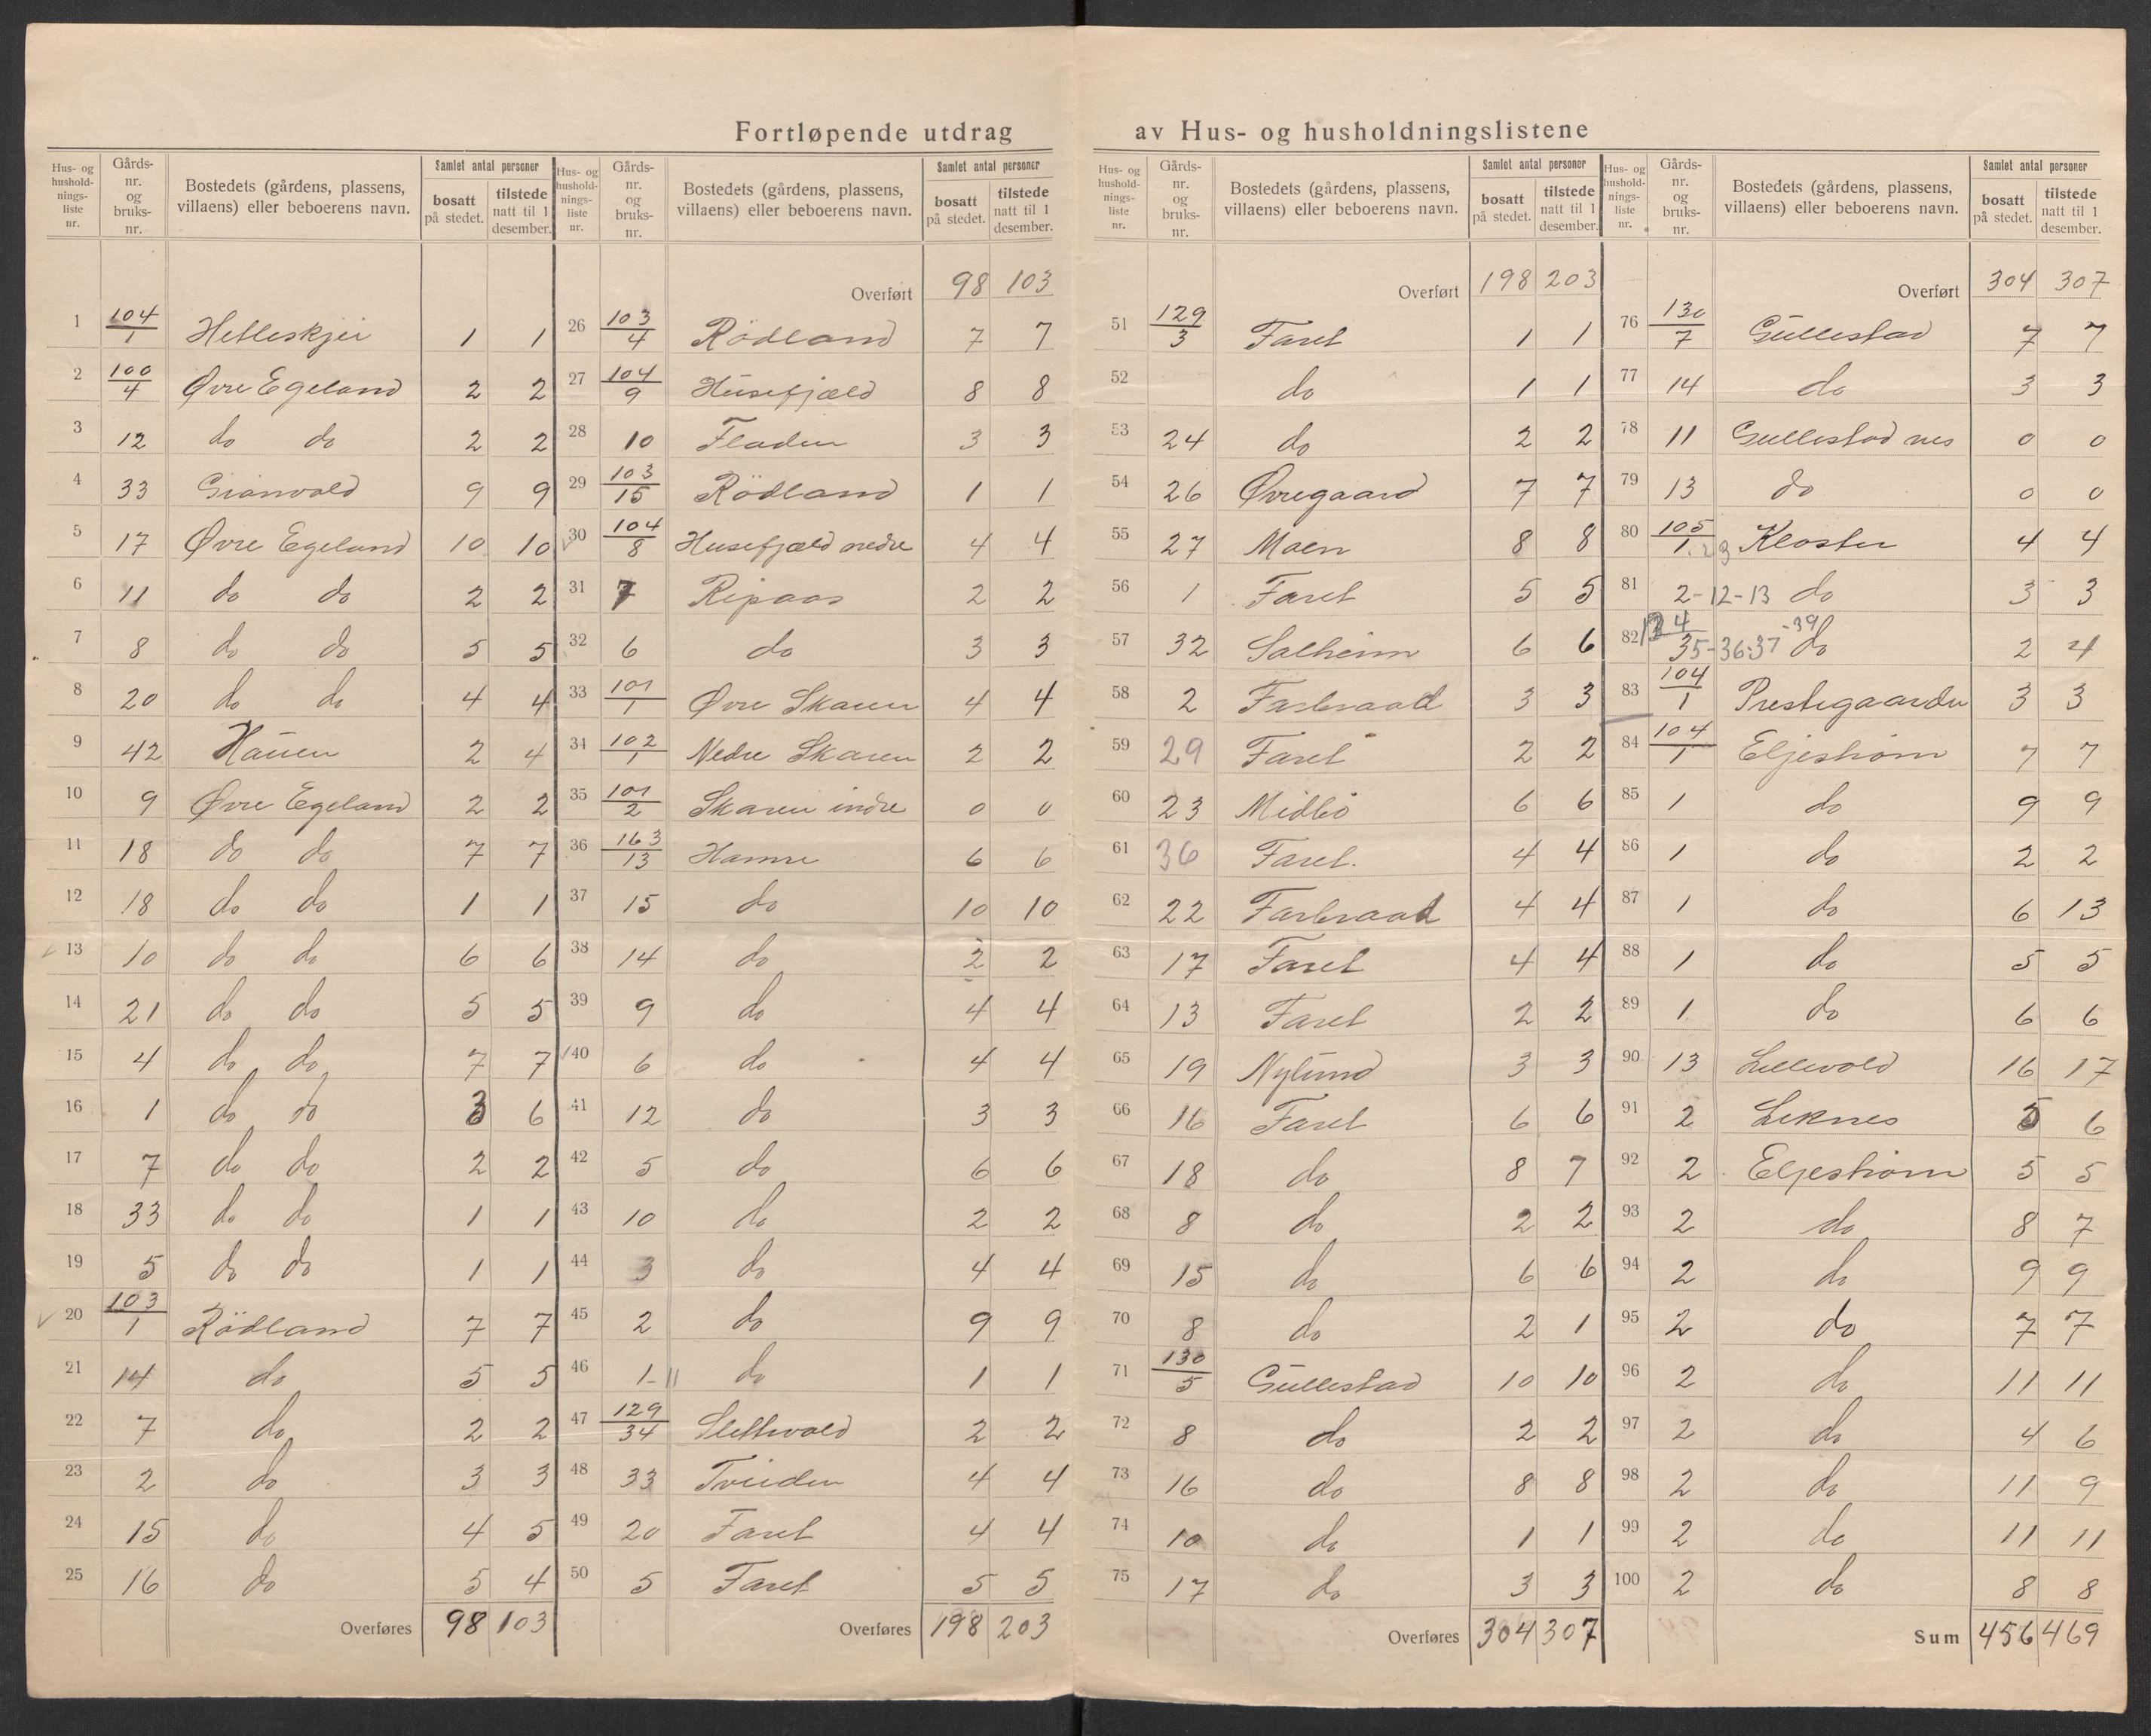 Fortløpende utdrag av Hus- og husholdningslistene
Hus- og husholdnings-liste nr. | Gårds-nr. og bruks-nr. | Bostedets (gårdens, plassens, villaens) eller beboerens navn. | Samlet antal personer | bosatt på stedet. | tilstede natt til 1 desember.
1 104/1 Helleskjer 1 1
2 100/4 Øvre Egeland 2 2
3 12 do do 2 2
4 33 Granvold 9 9
5 17 Øvre Egeland 10 10
6 11 do do 2 2
7 8 do do 5 5
8 20 do do 4 4
9 42 Hauen 2 4
10 9 Øvre Egeland 2 2
11 18 do do 7 7
12 18 do do 1 1
13 10 do do 6 6
14 21 do do 5 5
15 4 do do 7 7
16 1 do do 3 6
17 7 do do 2 2
18 33 do do 1 1
19 5 do do 1 1
20 103/1 Rödland 7 7
21 14 do 5 5
22 7 do 2 2
23 2 do 3 3
24 15 do 4 5
25 16 do 5 4
Overføres 98 103
Hus- og husholdnings-liste nr. | Gårds-nr. og bruks-nr. | Bostedets (gårdens, plassens, villaens) eller beboerens navn. | Samlet antal personer | bosatt på stedet. | tilstede natt til 1 desember.
Overført 98 103
26 103/4 Rödland 7 7
27 104/9 Husefjæld 8 8
28 10 Fladen 3 3
29 103/15 Rödland 1 1
30 104/8 Husefjæld nedre 4 4
31 7 Ripaas 2 2
32 6 do 3 3
33 101/1 Øvre Skaren 4 4
34 102/1 Nedre Skaren 2 2
35 101/2 Skaren indre 0 0
36 163/13 Hamre 6 6
37 15 do 10 10
38 14 do 2 2
39 9 do 4 4
40 6 do 4 4
41 12 do 3 3
42 5 do 6 6
43 10 do 2 2
44 3 do 4 4
45 2 do 9 9
46 1-11 do 1 1
47 129/34 Slettvold 2 2
48 33 Tveiden 4 4
49 20 Faret 4 4
50 5 Faret 5 5
Overføres 198 203
Hus- og husholdnings-liste nr. | Gårds-nr. og bruks-nr. | Bostedets (gårdens, plassens, villaens) eller beboerens navn. | Samlet antal personer | bosatt på stedet. | tilstede natt til 1 desember.
Overført 198 203
51 129/3 Faret 1 1
52 do 1 1
53 24 do 2 2
54 26 Øvregaard 7 7
55 27 Moen 8 8
56 1 Faret 5 5
57 32 Solheim 6 6
58 2 Farbraad 3 3
59 29 Faret 2 2
60 23 Midbö 6 6
61 36 Faret. 4 4
62 22 Farbraad 4 4
63 17 Faret 4 4
64 13 Faret 2 2
65 19 Nylund 3 3
66 16 Faret 6 6
67 18 do 8 7
68 8 do 2 2
69 15 do 6 6
70 8 do 2 1
71 130/5 Gullestad 10 10
72 8 do 2 2
73 16 do 8 8
74 10 do 1 1
75 17 do 3 3
Overføres 304 307
Hus- og husholdnings-liste nr. | Gårds-nr. og bruks-nr. | Bostedets (gårdens, plassens, villaens) eller beboerens navn. | Samlet antal personer | bosatt på stedet. | tilstede natt til 1 desember.
Overført 304 307
76 130/7 Gullestad 7 7
77 14 do 3 3
78 11 Gullestad nes 0 0
79 13 do 0 0
80 105/1 Kloster 4 4
81 2-12-13 do 3 3
82 35-36-37-39 do 2 4
83 104/1 Prestegaarden 3 3
84 104/1 Eljestrøm 7 7
85 1 do 9 9
86 1 do 2 2
87 1 do 6 13
88 1 do 5 5
89 1 do 6 6
90 13 Lillevold 16 17
91 2 Leknes 5 6
92 2 Eljestrøm 5 5
93 2 do 8 7
94 2 do 9 9
95 2 do 7 7
96 2 do 11 11
97 2 do 4 6
98 2 do 11 9
99 2 do 11 11
100 2 do 8 8
Sum 456 469